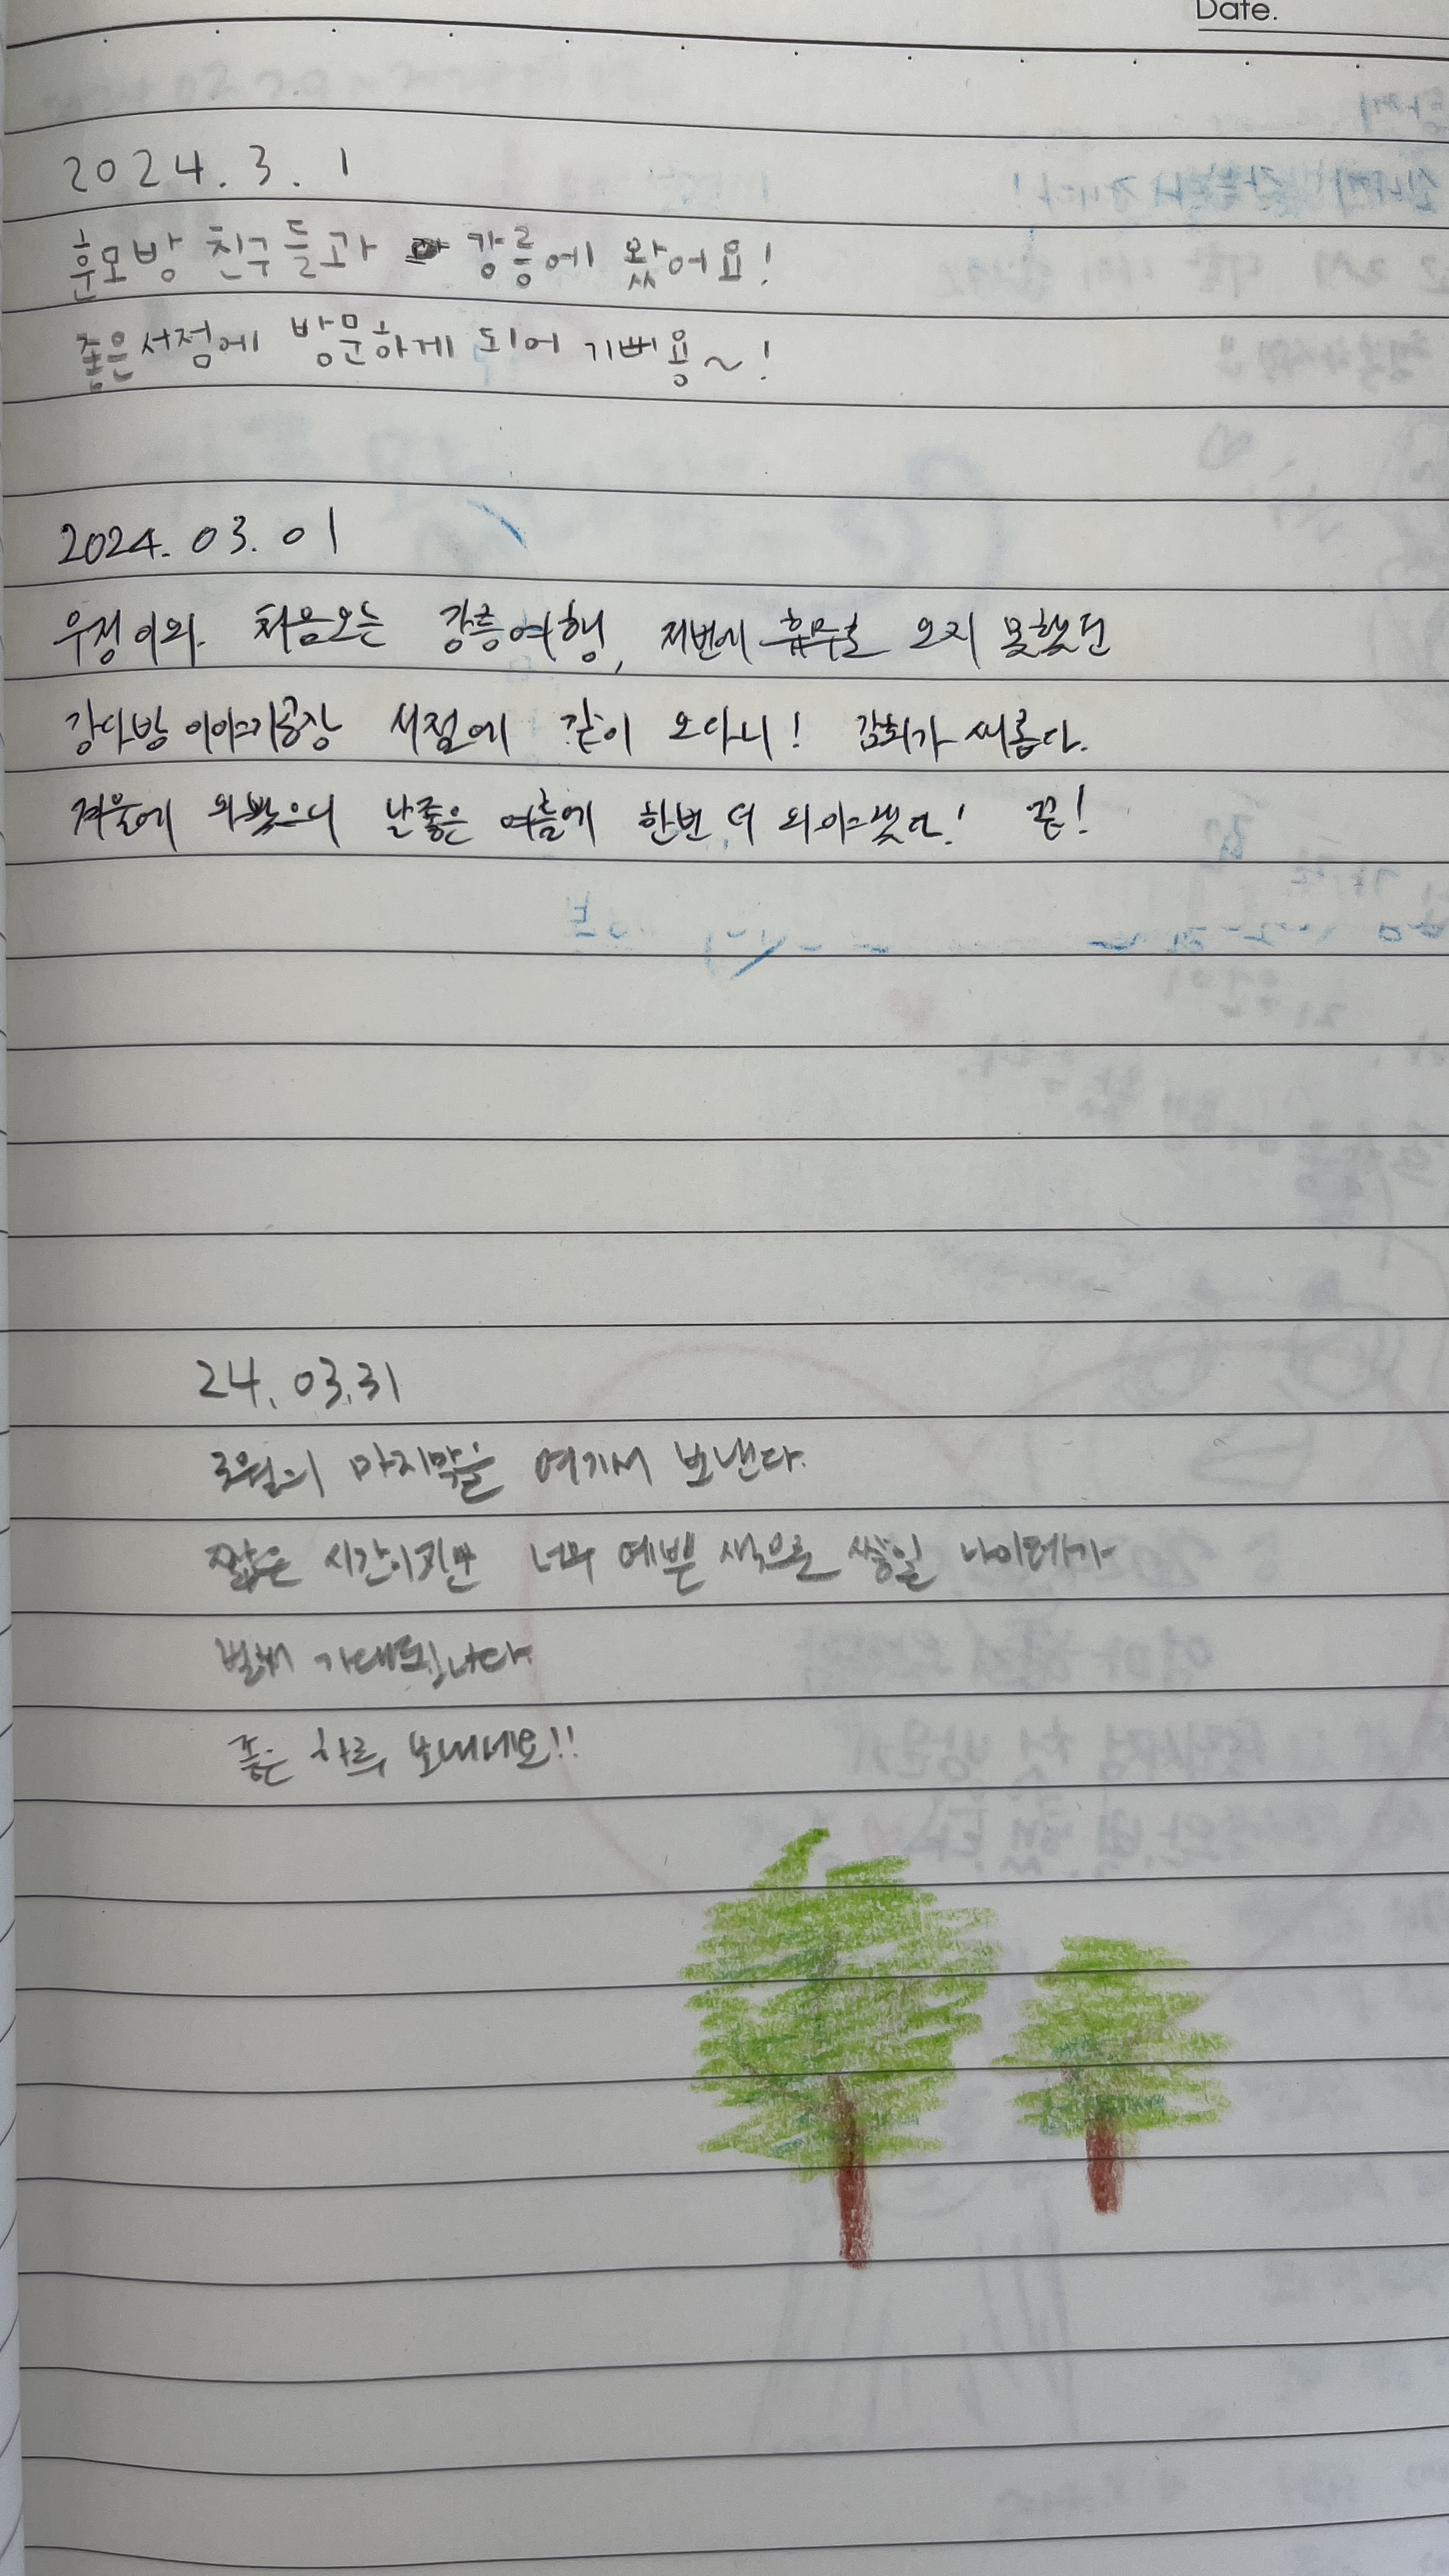 Date.
2024. 3. 1
훈모방 친구들과 강릉에 왔어요!
좋은서점에 방문하게 되어 기뻐용~!
2024. 03. 01
우정이와 처음오는 강릉여행, 저번에 휴무로 오지 못했던
강다방 이야기공장 서점에 같이 오다니! 감회가 새롭다.
겨울에 와봤으니 날좋은 여름에 한번 더 와야겠다! 끝!
24. 03. 31
3월의 마지막을 여기서 보낸다.
짧은 시간이지만 너무 예쁜 색으로 쌓일 나이테가
벌써 기대됩니다
좋은 하루 보내세요!!